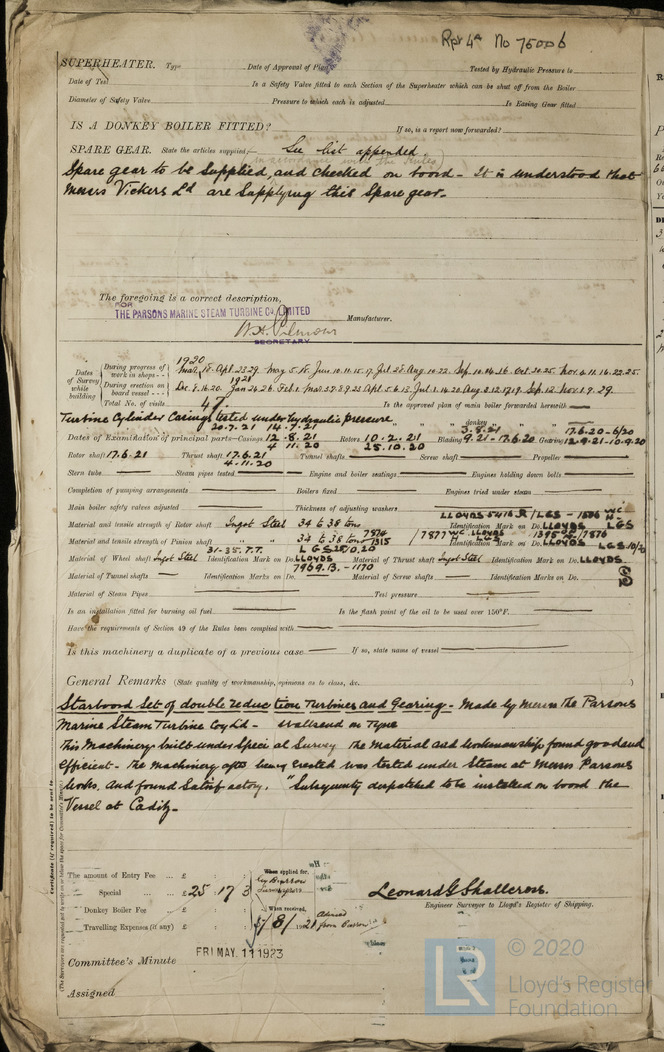 Rpt 4A No 75006
SUPERHEATER. Type Date of Approval of Plan Tested by Hydraulic Pressure to
Date of Test Is a Safety Valve fitted to each Section of the Superheater which can be shut off from the Boiler
Diameter of Safety Valve Pressure to which each is adjusted Is Easing Gear fitted
IS A DONKEY BOILER FITTED? If so, is a report now forwarded?
SPARE GEAR. State the articles supplied:— See list appended.
in accordance with the Rules
Spare gear to be supplied, and checked on board - It is understood that
Messrs Vickers Ld are supplying this spare gear.
The foregoing is a correct description,
FOR
THE PARSONS MARINE STEAM TURBINE Co. LIMITED
Manufacturer.
SECRETARY
1920
Dates of Survey while building
During progress of work in shops - -
During erection on board vessel - - -
1921
Total No. of visits 47 Is the approved plan of main boiler forwarded herewith
Turbine Cylinder Casings tested under hydraulic pressure
20.7.21 14.7.21 " " donkey " " "
3.8.21 17.6.20-6/20
Dates of Examination of principal parts—Casings 12.8.21 Rotors 10.2.21 Blading 9.21-17.6.20 Gearing 12.9.21-10.9.20
4 11.20 25.10.20
Rotor shaft 17.6.21 Thrust shaft 17.6.21 Tunnel shafts Screw shaft Propeller
4.11.20
Stern tube Steam pipes tested Engine and boiler seatings Engines holding down bolts
Completion of pumping arrangements Boilers fixed Engines tried under steam
Main boiler safety valves adjusted Thickness of adjusting washers
Material and tensile strength of Rotor shaft Ingot Steel 34 to 38 tons Identification Mark on Do. LLOYDS LGS
Material and tensile strength of Pinion shaft " 34 to 38 tons Identification Mark on Do. LLOYDS LGS 10/20
31-35.T.T. LGS 28/0.20
Material of Wheel shaft Ingot Steel Identification Mark on Do. LLOYDS Material of Thrust shaft Ingot Steel Identification Mark on Do. LLOYDS
7969.13.-1170
Material of Tunnel shafts Identification Marks on Do. Material of Screw shafts Identification Marks on Do.
Material of Steam Pipes Test pressure
Is an installation fitted for burning oil fuel Is the flash point of the oil to be used over 150°F.
Have the requirements of Section 49 of the Rules been complied with
Is this machinery a duplicate of a previous case If so, state name of vessel
General Remarks (State quality of workmanship, opinions as to class, &c. )
Starboard Set of double reduction Turbines and Gearing - Made by Messrs The Parsons
Marine Steam Turbine Coy Ld - Wallsend on Tyne
This Machinery built under Special Survey the material and workmanship found good and
efficient - The machinery after being erected was tested under Steam at Messrs Parsons
Works, and found Satisfactory. "Subsequently despatched to be installed on board the
Vessel at Cadiz -
Certificate (if required) to be sent to
The amount of Entry Fee ... £ : : When applied for,
Special ... ... £ 25 : 17 : 3
Donkey Boiler Fee ... £ : : When received,
Travelling Expenses (if any) £ : : 5/8/1921
Leonard G Shallcross.
Engineer Surveyor to Lloyd's Register of Shipping.
Committee's Minute FRI. MAY. 11 1923
Assigned
LR
© 2020
Lloyd's Register
Foundation